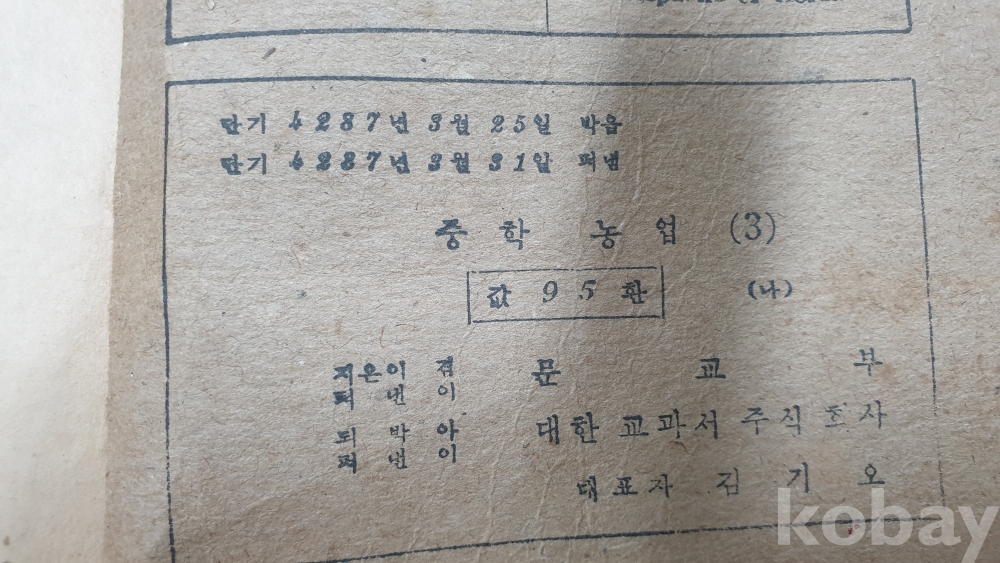 단기 4287년 3월 25일 박음
단기 4287년 3월 31일 펴냄
중학 농업 (3)
값 95환 (나)
지은이 겸 문교부
펴낸이
되박아 대한 교과서 주식 회사
펴낸이
대표자 김기오
kobay